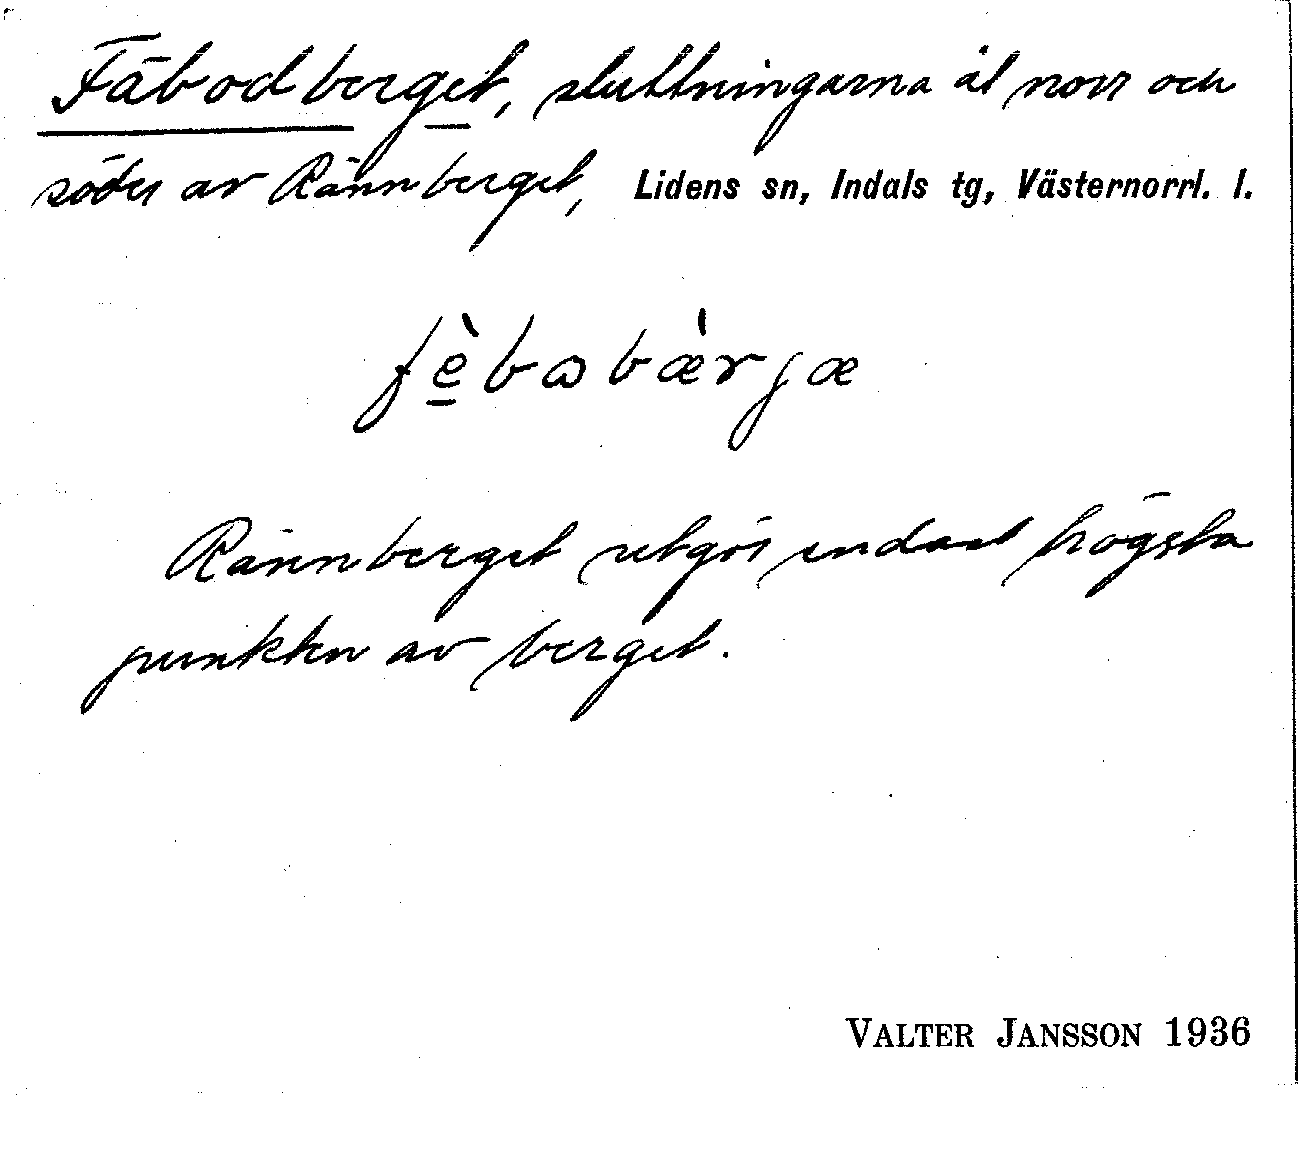 Fäbodberget, sluttningarna åt norr och
söder av Rännberget, Lidens sn, Indals tg, Västernorrl. l.
fèbɷbæ̀rjæ
Rännberget utgör endast högsta
punkten av berget.
VALTER JANSSON 1936